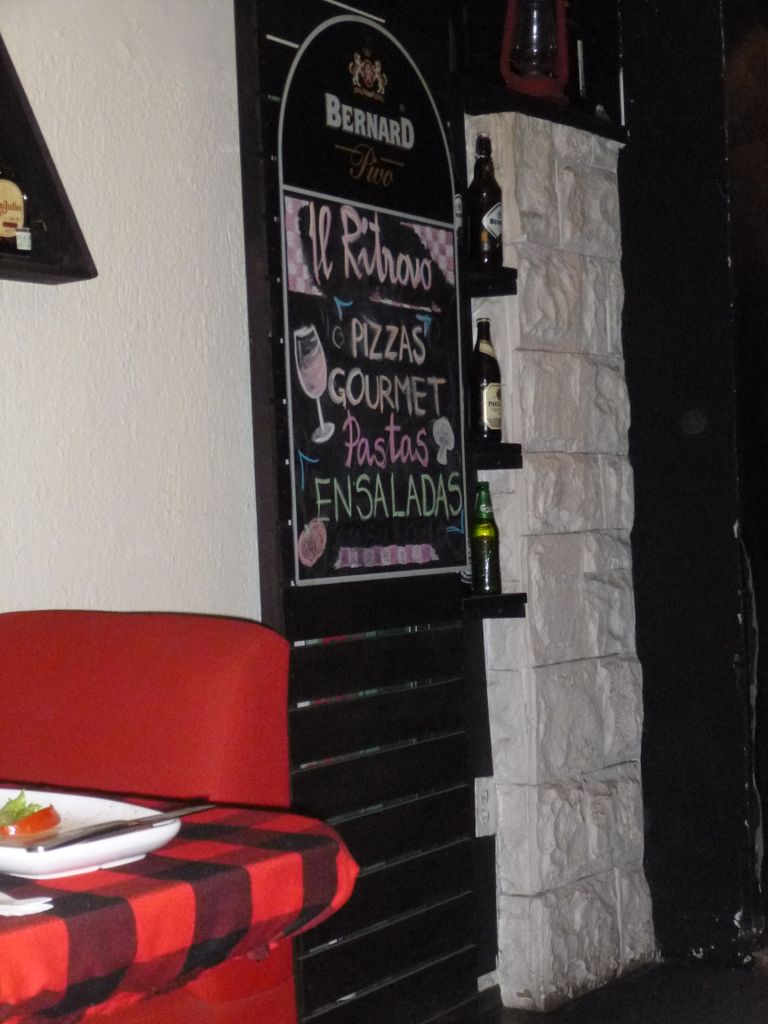 BERNARD
Pivo
Il Ritrovo
PIZZAS
GOURMET
Pastas
ENSALADAS